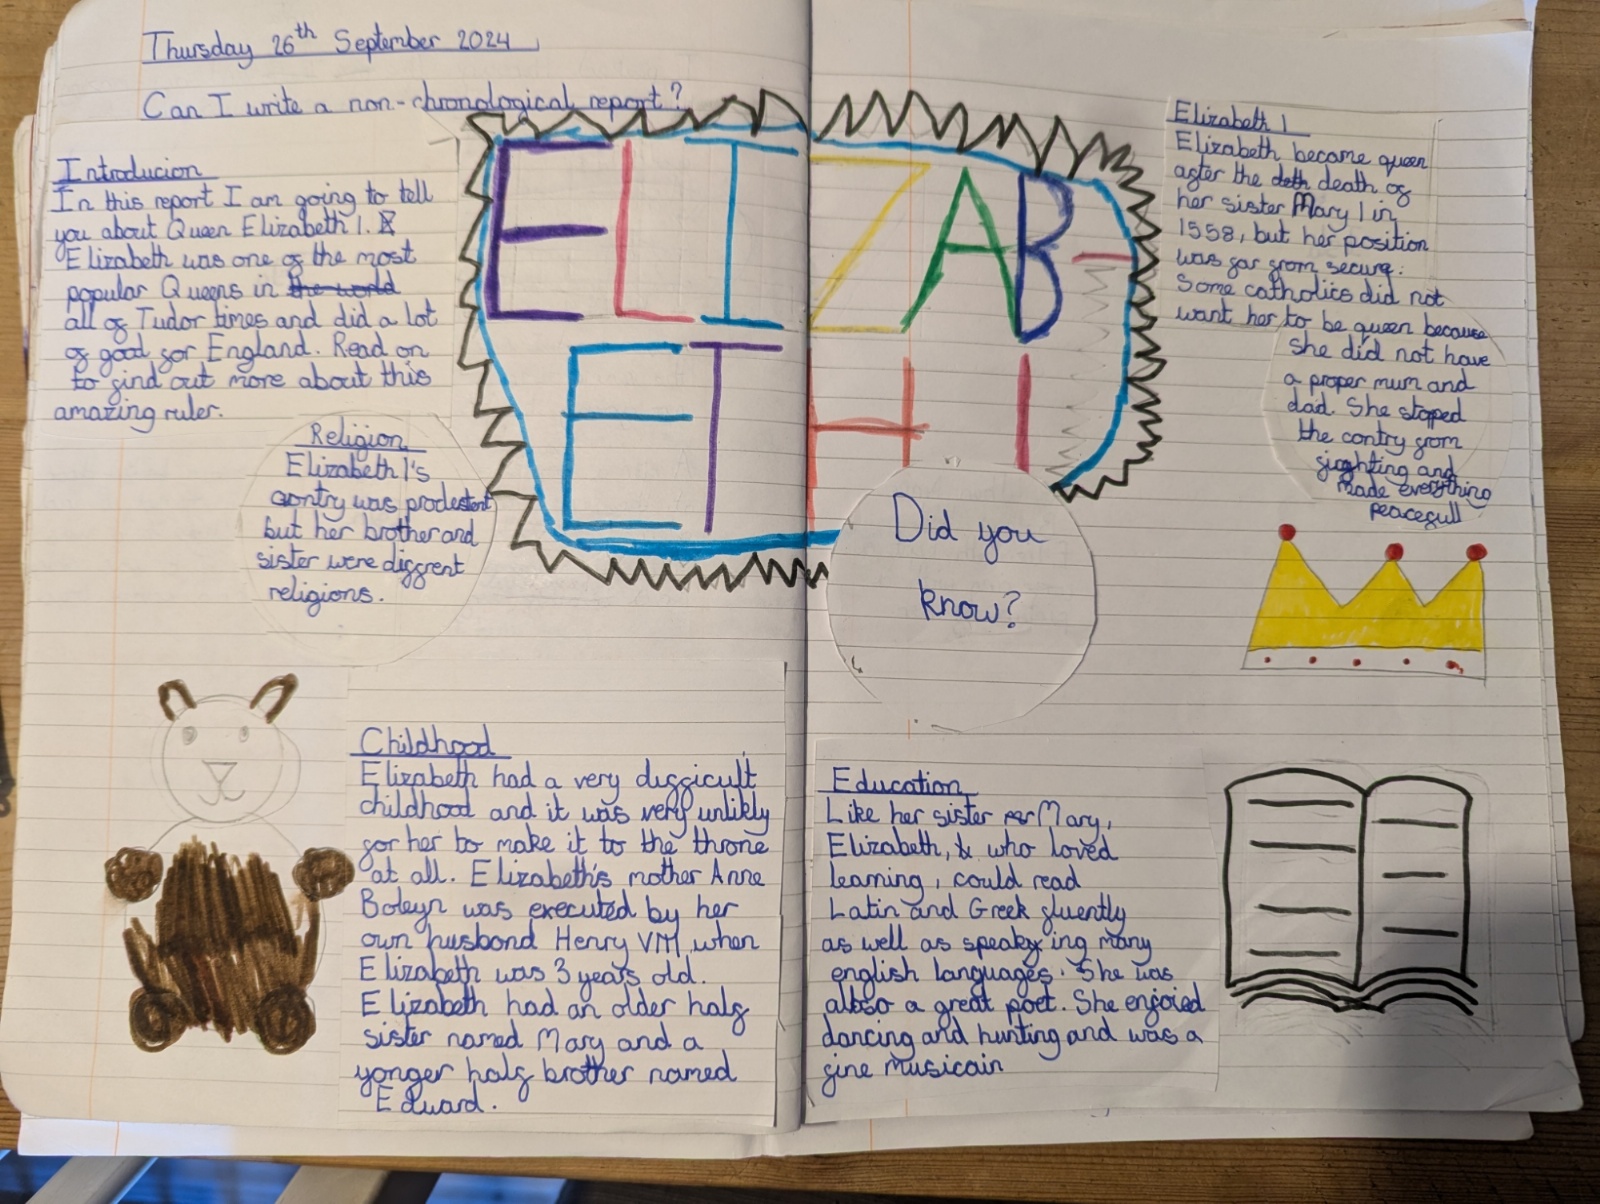 Thursday 26th September 2024
Can I write a non-chronological report?
Introducion
In this report I am going to tell
you about Queen Elizabeth 1.
Elizabeth was one of the most
popular Queens in the world
all of Tudor times and did a lot
of good for England. Read on
to find out more about this
amazing ruler.
ELIZAB-
ETH I
Elizabeth 1
Elizabeth became queen
after the deth death of
her sister Mary 1 in
1558, but her position
was far from secure.
Some catholics did not
want her to be queen because
she did not have
a proper mum and
dad. She stopped
the contry from
fioghting and
made everything
peacefull
Religion
Elizabeth 1's
contry was prodestent
but her brother and
sister were diffrent
religions.
Did you
know?
Childhood
Elizabeth had a very difficult
childhood and it was very unlikly
for her to make it to the throne
at all. Elizabeth's mother Anne
Boleyn was executed by her
own husbond Henry VIII when
Elizabeth was 3 years old.
Elizabeth had an older half
sister named Mary and a
yonger half brother named
Edward.
Education
Like her sister Mary,
Elizabeth, who loved
learning, could read
Latin and Greek fluently
as well as speaking many
english languages. She was
also a great poet. She enjoied
dancing and hunting and was a
fine musicain